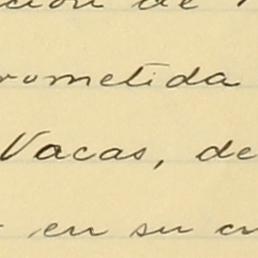 de
rometida
Vacas, de
en su